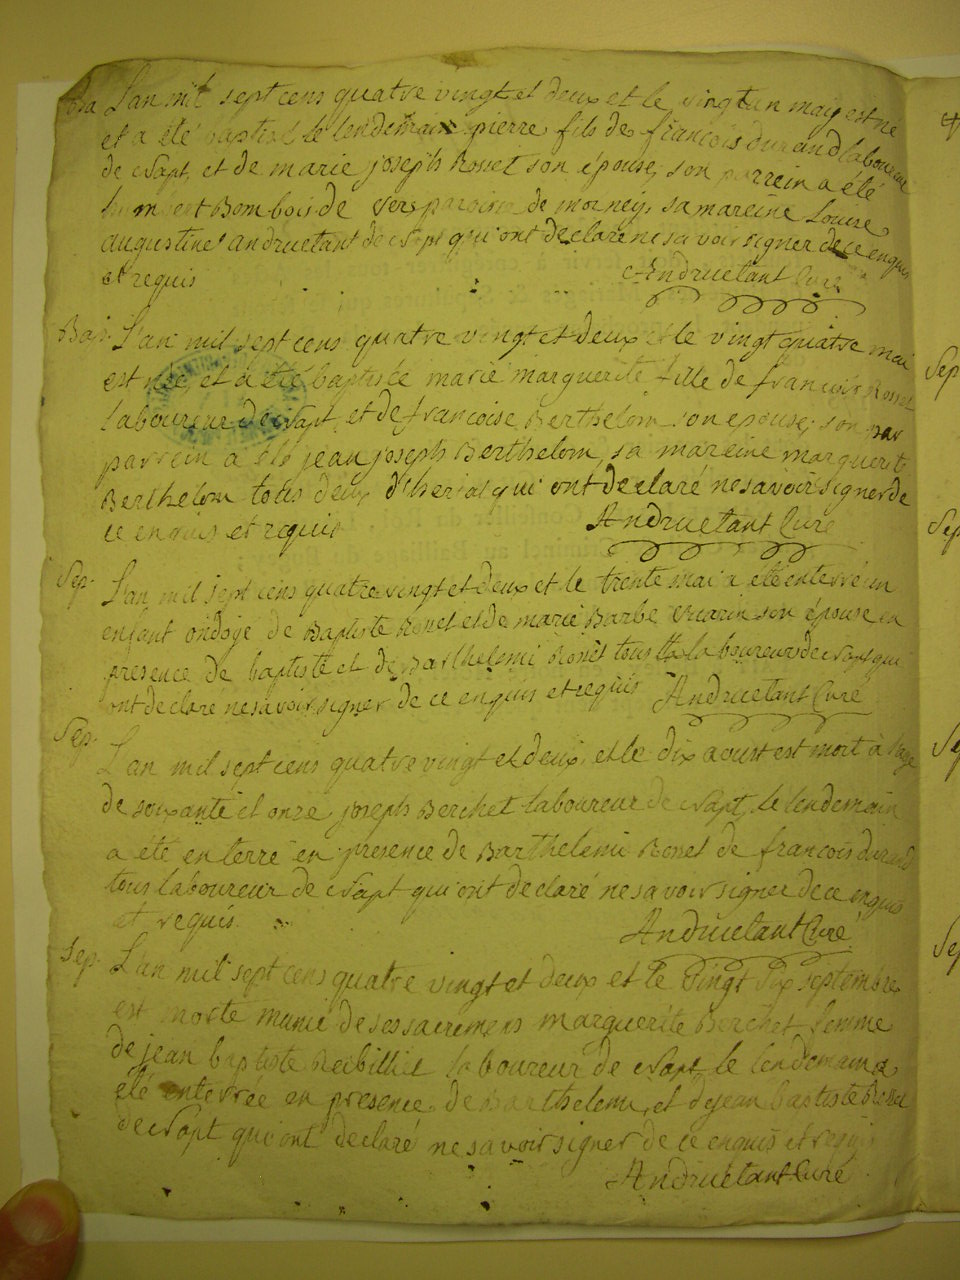 Ba L'an mil sept cens quatre vingt et deux et le vingt un maiy est né
et a été baptisé le lendemain pierre fils de francois durand laboureur
de Wapt, et de marie joseph Rosset son épouse, son parrein a été
humbert Bombois de Vers paroisse de morney, sa mareine Louise
augustine andruetant de Wapt qui ont declaré ne savoir signer de ce enquis
et requis
Andruetant Curé
Bap. L'an mil sept cens quatre vingt et deux et le vingt quatre mai
est née, et a été baptisée marie marguerite fille de francois Rosset
laboureur de Wapt, et de francoise Berthelom son epouse; son par
parrein a été jean joseph Berthelom, sa mareine marguerite
Berthelom tous deux d'heriat qui ont declaré ne savoir signer de
ce enquis et requis
Andruetant Curé
Sep. L'an mil sept cens quatre vingt et deux et le trente mai a été enterré un
enfant ondoyé de Baptiste Rosset et de marie Barbe son épouse en
presence de baptiste et de Barthelemi Rosset tous laboureurs de Wapt qui
ont declaré ne savoir signer de ce enquis et requis Andruetant Curé
Sep. L'an mil sept cens quatre vingt et deux, et le dix aoust est mort à l'age
de soixante et onze joseph Berchet laboureur de Wapt, le lendemain
a été enterré en presence de Barthelemi Rosset de francois durand
tous laboureur de Wapt qui ont declaré ne savoir signer de ce enquis
et requis.
Andruetant Curé
Sep. L'an mil sept cens quatre vingt et deux et le vingt six septembre
est morte munie de ses sacremens marguerite Berchet femme
de jean baptiste laboureur de Wapt le lendemain a
été enterrée en presence de Barthelemi et de jean baptiste Rosset
de Wapt qui ont declaré ne savoir signer de ce enquis et requis
Andruetant Curé
Sep
Sep
Sep
Sep